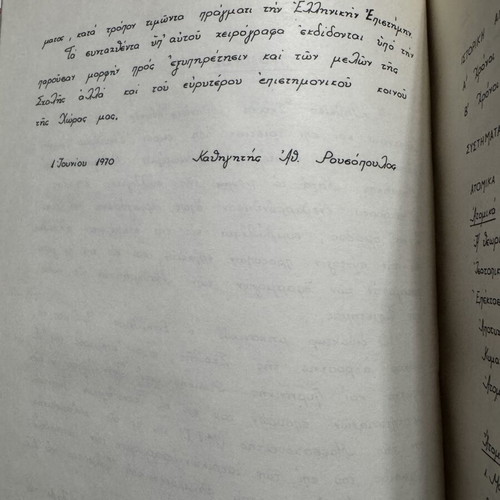 ματος, κατά τρόπον τιμώντα πράγματι τήν Ἑλληνικήν Ἐπιστήμην.
Τό συνταχθέντα ὑπ' αὐτοῦ χειρόγραφα ἐκδίδονται ὑπό τήν
παροῦσαν μορφήν πρός ἐξυπηρέτησιν καί τῶν μελῶν τῆς
Στολῆς ἀλλά καί τοῦ εὐρυτέρου ἐπιστημονικοῦ κοινοῦ
τῆς Χώρας μας.
1 Ἰουνίου 1970 Καθηγητής Ἀθ. Ρουσόπουλος
ΙΣΤΟΡΙΚΗ
Α' Χρόνοι
Β' Χρόνοι
ΣΥΣΤΗΜΑΤΑ
ΑΤΟΜΙΚΑ
Ἀτομικά